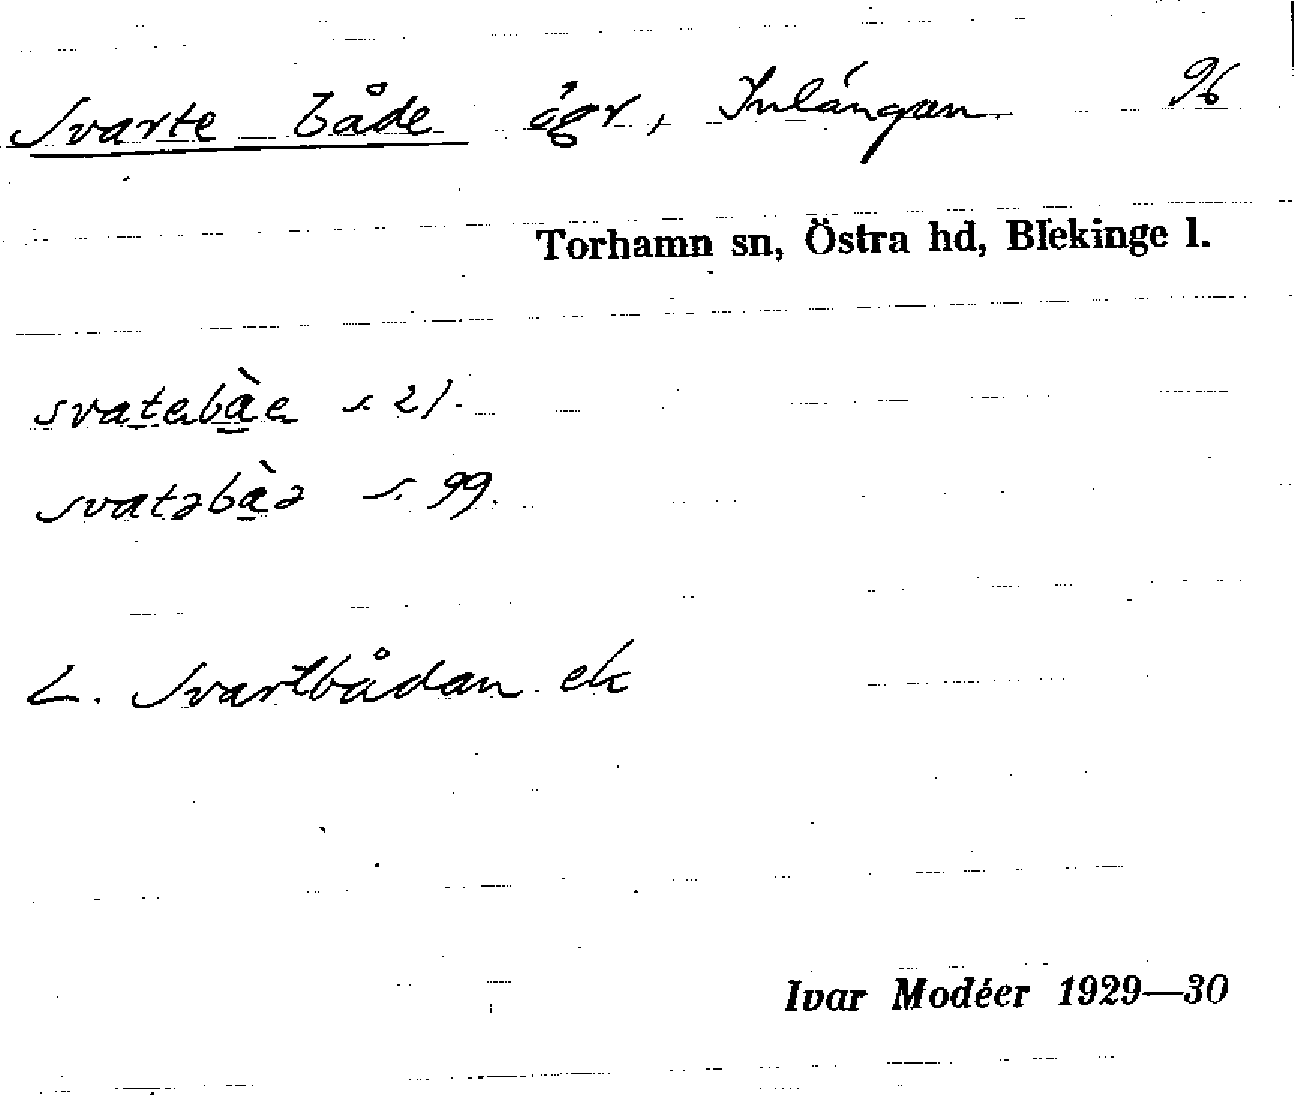 Svarte både ögr, Inlångan 96
Torhamn sn, Östra hd, Blekinge l.
svatabàa s. 21.
svatəbàə s. 99.
L. Svartbådan ek
Ivar Modéer 1929—30